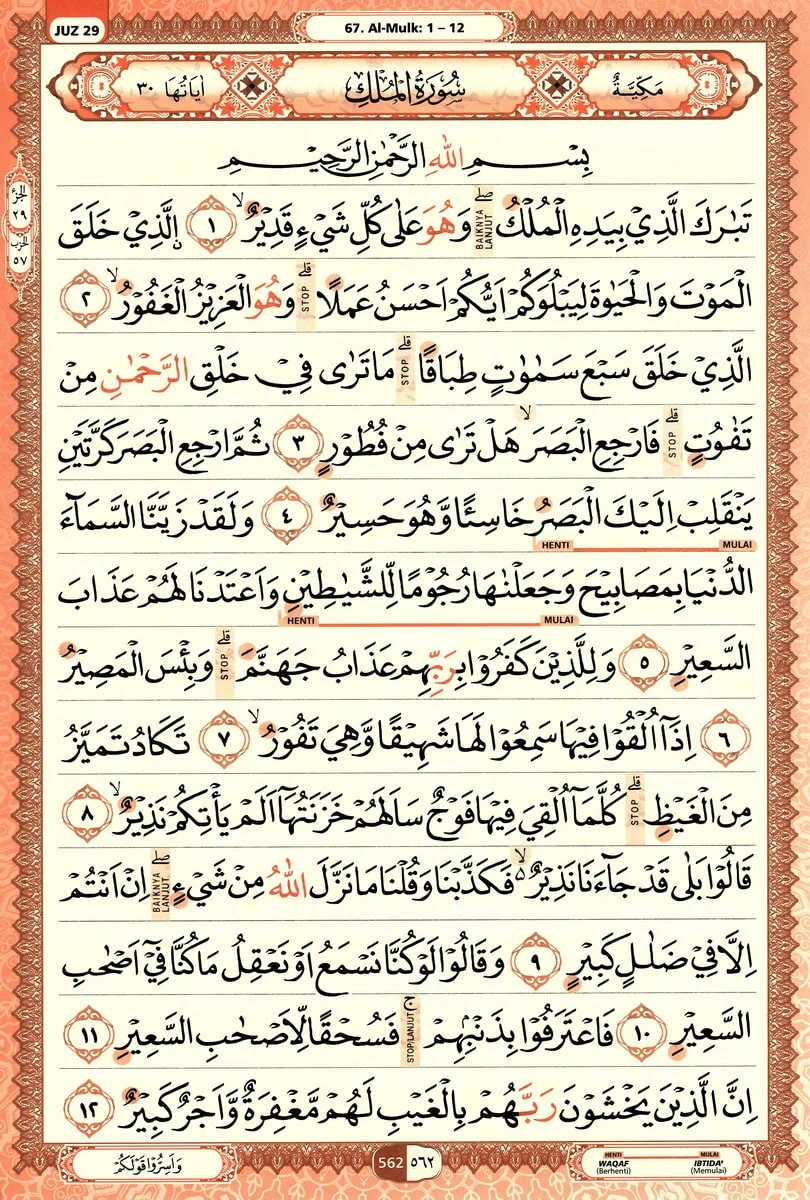 JUZ 29
67. Al-Mulk: 1 – 12
مَكِّيَّةٌ سُورَةُ الْمُلْكِ اٰيَاتُهَا ٣٠
الجزء ٢٩
الحزب ٥٧
بِسْمِ اللّٰهِ الرَّحْمٰنِ الرَّحِيْمِ
تَبٰرَكَ الَّذِيْ بِيَدِهِ الْمُلْكُ ۖ BAIKNYA LANJUT وَهُوَ عَلٰى كُلِّ شَيْءٍ قَدِيْرٌۙ ١ ۨالَّذِيْ خَلَقَ
الْمَوْتَ وَالْحَيٰوةَ لِيَبْلُوَكُمْ اَيُّكُمْ اَحْسَنُ عَمَلًا ۗ STOP وَهُوَ الْعَزِيْزُ الْغَفُوْرُۙ ٢
الَّذِيْ خَلَقَ سَبْعَ سَمٰوٰتٍ طِبَاقًا ۗ STOP مَا تَرٰى فِيْ خَلْقِ الرَّحْمٰنِ مِنْ
تَفٰوُتٍ ۗ STOP فَارْجِعِ الْبَصَرَۙ هَلْ تَرٰى مِنْ فُطُوْرٍ ٣ ثُمَّ ارْجِعِ الْبَصَرَ كَرَّتَيْنِ
يَنْقَلِبْ اِلَيْكَ الْبَصَرُ خَاسِئًا وَّهُوَ حَسِيْرٌ ٤ وَلَقَدْ زَيَّنَّا السَّمَاۤءَ
MULAI HENTI
الدُّنْيَا بِمَصَابِيْحَ وَجَعَلْنٰهَا رُجُوْمًا لِّلشَّيٰطِيْنِ وَاَعْتَدْنَا لَهُمْ عَذَابَ
MULAI HENTI
السَّعِيْرِ ٥ وَلِلَّذِيْنَ كَفَرُوْا بِرَبِّهِمْ عَذَابُ جَهَنَّمَ ۗ STOP وَبِئْسَ الْمَصِيْرُ
٦ اِذَآ اُلْقُوْا فِيْهَا سَمِعُوْا لَهَا شَهِيْقًا وَّهِيَ تَفُوْرُۙ ٧ تَكَادُ تَمَيَّزُ
مِنَ الْغَيْظِ ۗ STOP كُلَّمَآ اُلْقِيَ فِيْهَا فَوْجٌ سَاَلَهُمْ خَزَنَتُهَآ اَلَمْ يَأْتِكُمْ نَذِيْرٌۙ ٨
قَالُوْا بَلٰى قَدْ جَاۤءَنَا نَذِيْرٌ ەۙ فَكَذَّبْنَا وَقُلْنَا مَا نَزَّلَ اللّٰهُ مِنْ شَيْءٍ ۖ BAIKNYA LANJUT اِنْ اَنْتُمْ
اِلَّا فِيْ ضَلٰلٍ كَبِيْرٍ ٩ وَقَالُوْا لَوْ كُنَّا نَسْمَعُ اَوْ نَعْقِلُ مَا كُنَّا فِيْٓ اَصْحٰبِ
السَّعِيْرِ ١٠ فَاعْتَرَفُوْا بِذَنْۢبِهِمْ ۚ STOP/LANJUT فَسُحْقًا لِّاَصْحٰبِ السَّعِيْرِ ١١
اِنَّ الَّذِيْنَ يَخْشَوْنَ رَبَّهُمْ بِالْغَيْبِ لَهُمْ مَّغْفِرَةٌ وَّاَجْرٌ كَبِيْرٌ ١٢
وَاَسِرُّوْا قَوْلَكُمْ
562 ٥٦٢
HENTI MULAI
WAQAF IBTIDA'
(Berhenti) (Memulai)